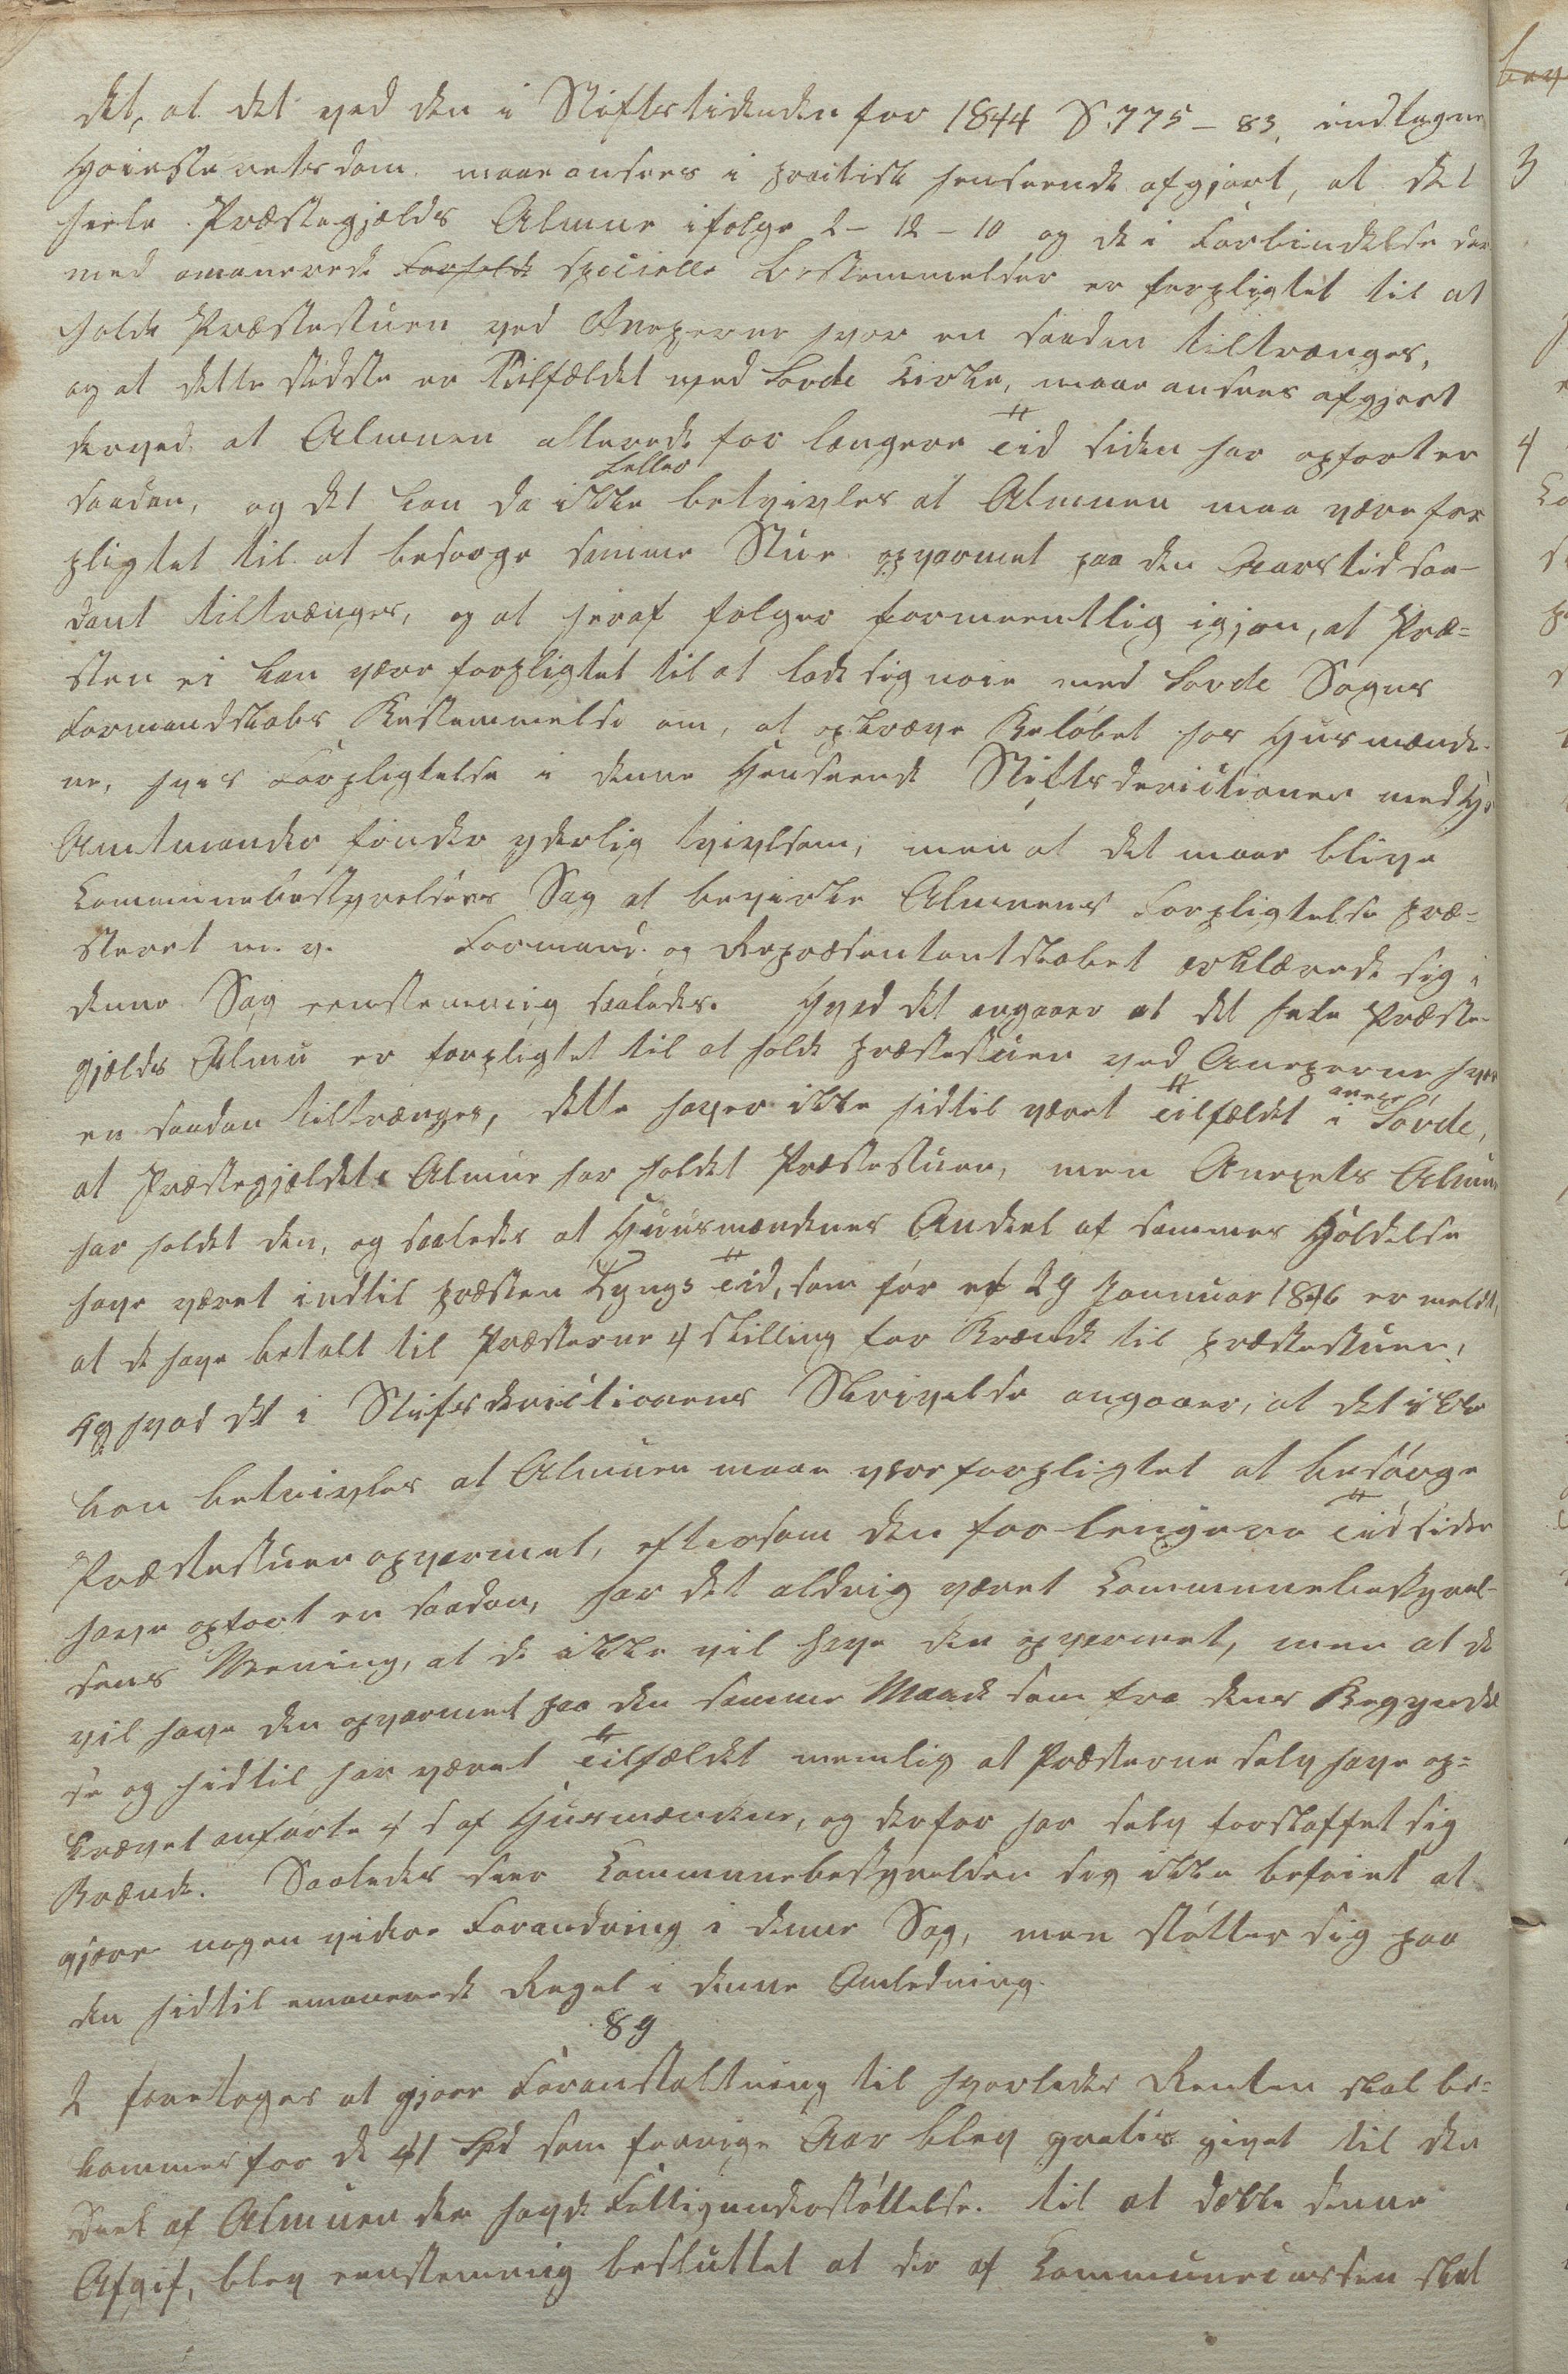 det, at det ved den i Stiftstidenden for 1844 S. 775 - 83, indtagne
Høiesteretsdom maae ansees i practisk henseende afgjort, at det
heele Præstegjelds Almue ifølge 2 - 12 - 10 og de i Forbindelse der
med emanerede Forholde specielle Bestemmelser er forpligtet til at
holde Præstestuen ved Anexerne hvor en saadan tiltrænges,
og at dette sidste er Tilfældet med Sövde Kirke, maae ansees afgjort
derved at Almuen allerede for længere Tid siden har opfört en
saadan, og det kan da ikke heller betvivles at Almuen maa være for
pligtet til at besørge samme Stue opvarmet paa den Aarstid saa-
dant tiltrænges, og at heraf følger formeentlig igjen, at Præ=
sten ei kan være forpligtet til at lade sig nøie med Sovde Sogns
Formandskabs Bestemmelse om, at opkræve Beløbet hos Husmænde-
ne, hvis Forpligtelse i denne Henseende Stiftsderictionen med Hr
Amtmanden finder yderlig tvivlsom, men at det maae blive
Communebestyrelsens Sag at bevirke Almuens Forpligtelse præ=
steret m. v. Formand- og Repræsentantskabet erklærede sig i
denne Sag eenstemmig saaledes. Hvad det angaaer at det hele Præste-
gjelds Almue er forpligtet til at holde præstestuen ved Anexerne hvor
en saadan tiltrænges, dette haver ikke hidtil været Tilfældet i anexe Sövde,
at Præstegjeldets Almue har holdet Præstestuen, men Anexets Almue
har holdet den, og saaledes at Huusmændenes Andeel af sammes Holdelse
have været indtil præsten Lyngs Tid, som før af 29 Januar 1846 er meldt,
at de have betalt til Præsterne 4 skilling for Brænde til præstestuen,
og hvad det i Stiftsderictionens Skrivelse angaaer, at det ikke
kan betvivles at Almuen maae være forpligtet at besörge
Præstestuen opvarmet, eftersom den for længere Tid siden
have opført en saadan, har det aldrig været Communebestyrel-
sens Mening, at de ikke vil have den opvarmet, men at de
vil have den opvarmet paa den samme Maade som fra dens Begyndel
se og hidtil har været Tilfældet nemlig at Præsterne selv have op=
krævet anførte 4 s af Husmændene, og derfor har selv forskaffet sig
Brænde. Saaledes seer Communebestyrelsen sig ikke beføiet at
gjøre nogen videre Forandring i denne Sag, men støtter sig paa
den hidtil emanerede Regel i denne Anledning.
89
2 foretoges at gjøre Foranstaltning til hvorledes Renten skal be=
kommes for de 41 Spd som forrige Aar blev gratis givet til den
Deel af Almuen der havde Fattigunderstöttelse. til at dække denne
Afgif, blev eenstemmig besluttet at der af Communecassen skal